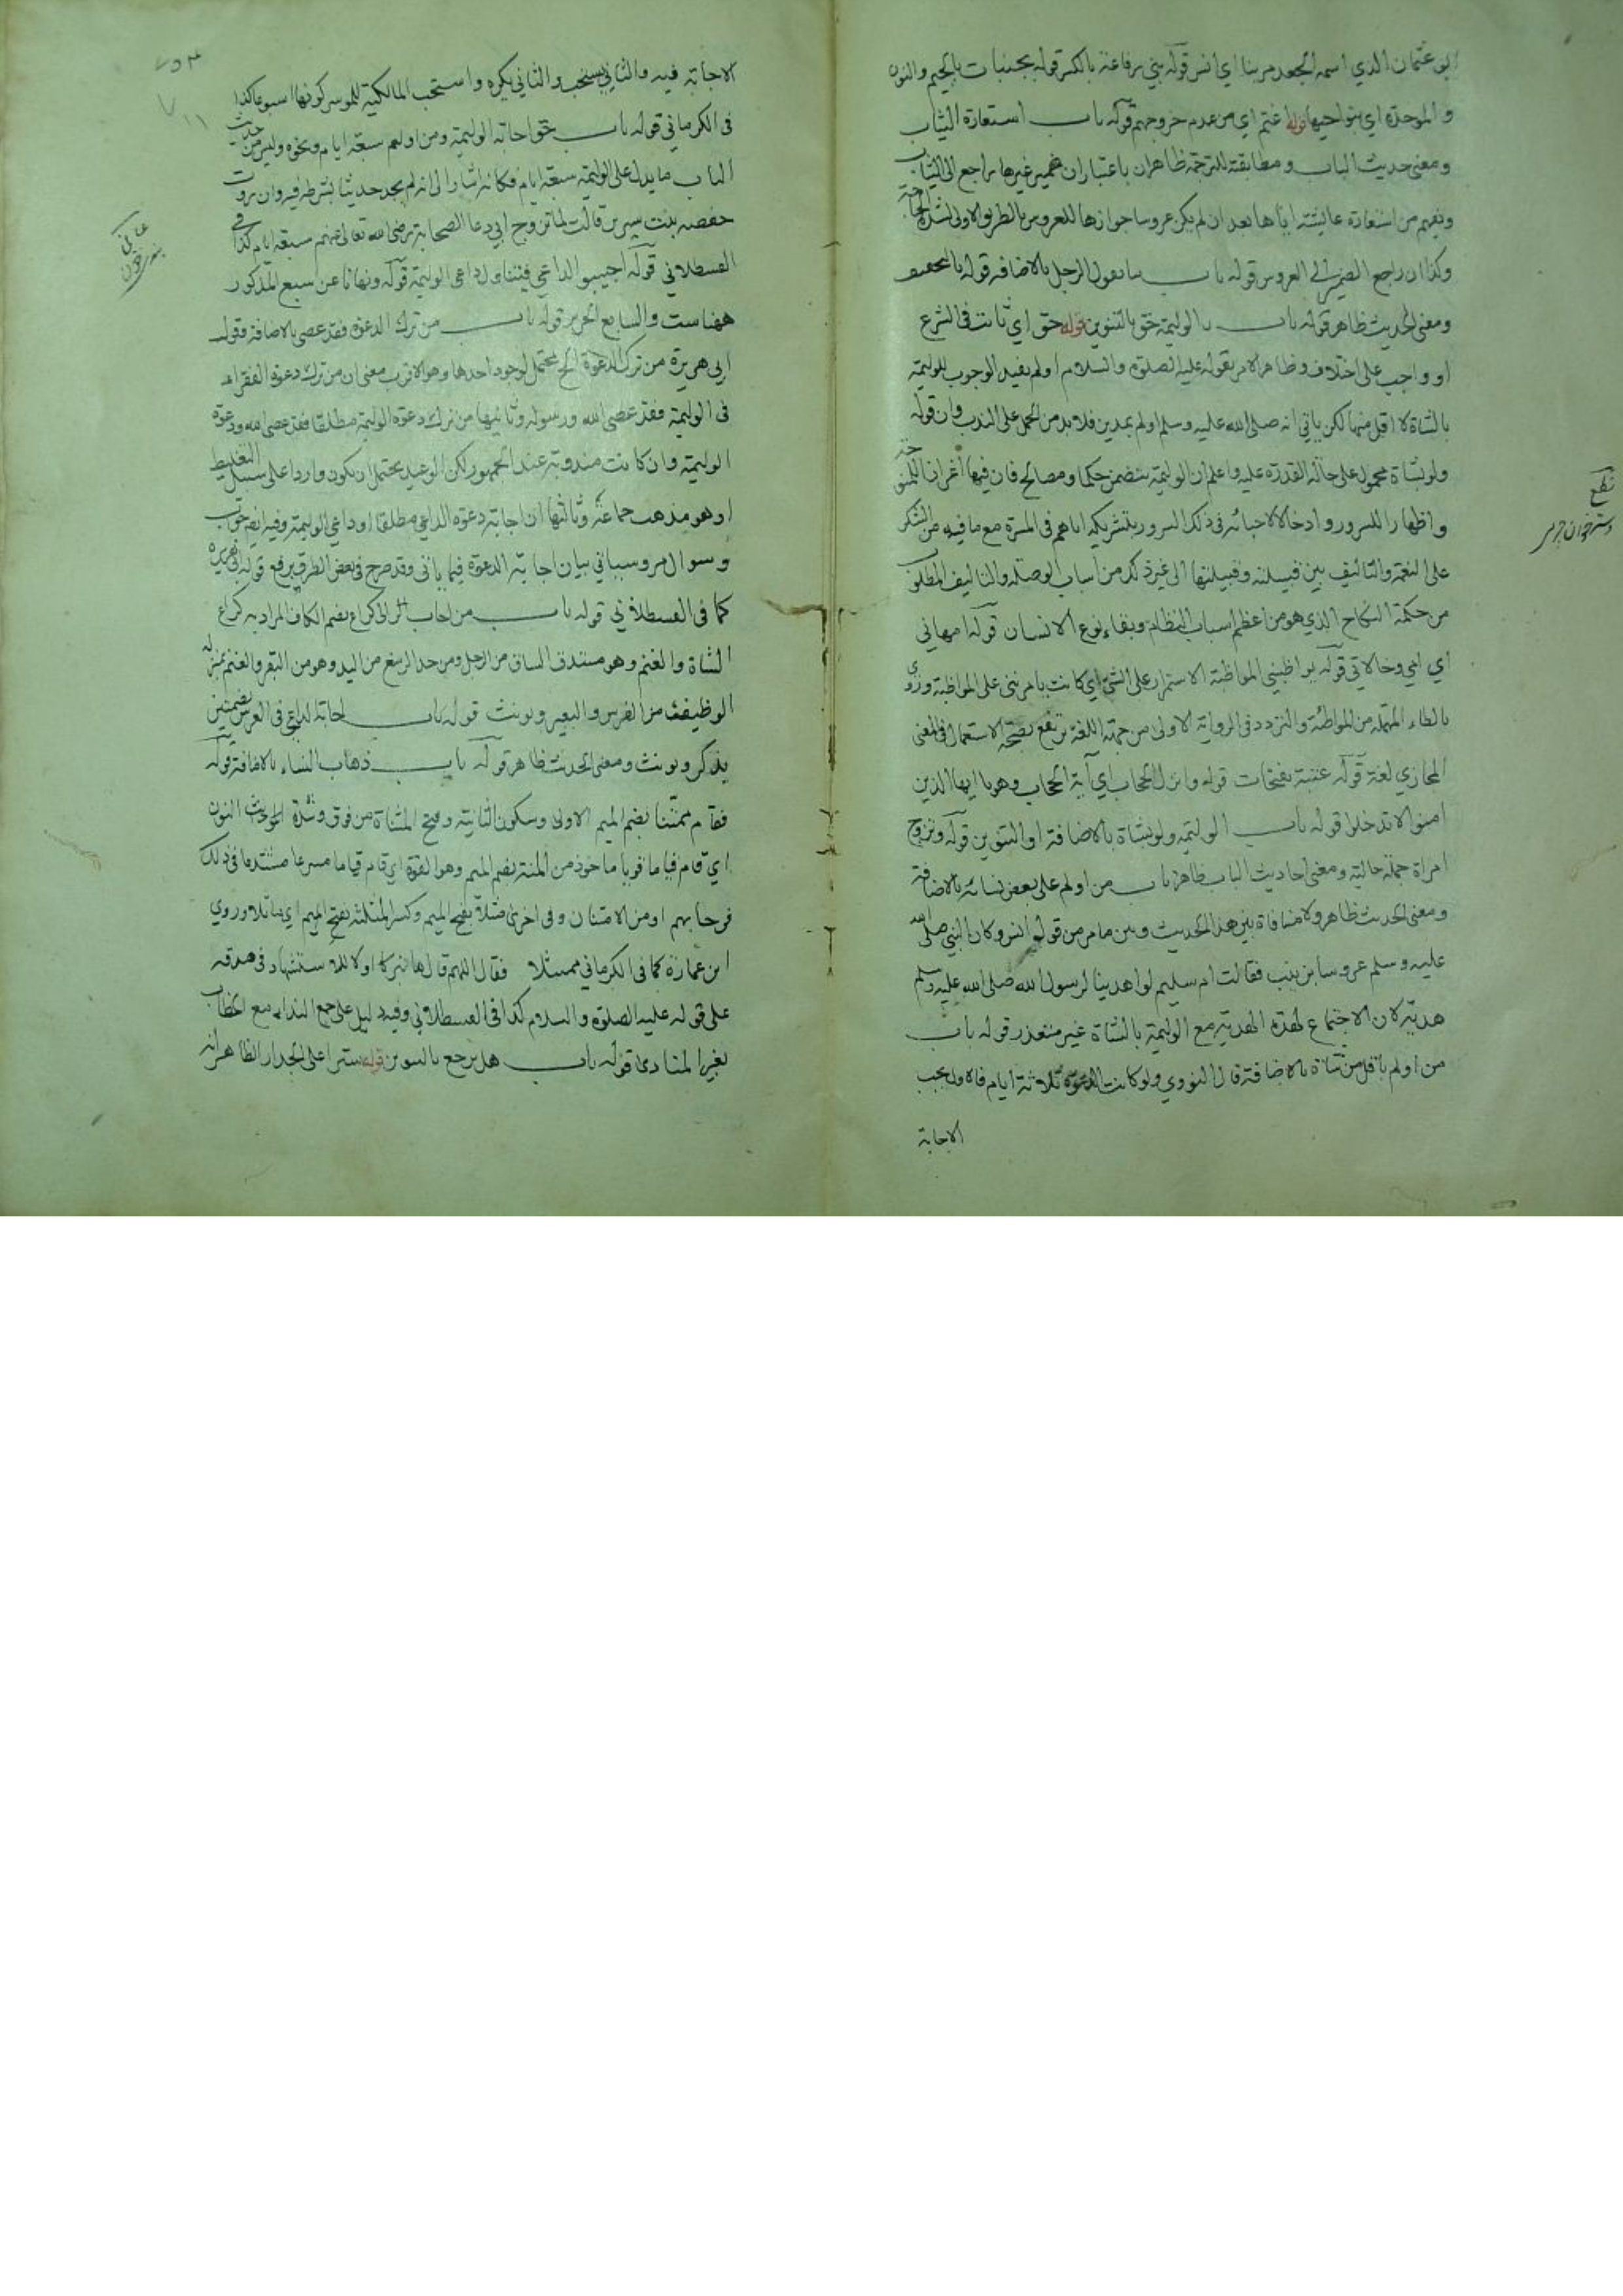 ابو عثمان الذي اسمه الجعد مر بنا اي انس قوله بني رفاعة بالكسر قوله بجنبات بالجيم والنون
و الموحدة اي بنواحيها قوله غنم اي من عدم خروجهم قوله باب استعارة الثياب
ومعنى حديث الباب ومطابقته للترجمة ظاهران باعتبار ان ضمير غيرها راجع الى الثياب
ويفهم من استعارة عايشة اياها بعد ان لم يكن عروسا جوازها للعروس بالطريق الاولى لشدة الحاجة
وكذا ان راجع الضمير الى العروس قوله باب ما يقول الرجل بالاضافة قوله بالتخفيف
ومعنى الحديث ظاهر قوله باب الوليمة حق بالتنوين قوله حق اي ثابت في الشرع
او واجب على اختلاف وظاهر الامر بقوله عليه الصلوة والسلام اولم يفيد الوجوب للوليمة
بالشاة لا اقل منها لكن ياتي انه صلى الله عليه وسلم اولم بمدين فلا بد من الحمل على الندب وان قوله
ولو بشاة محمول على حالة القدرة عليه واعلم ان الوليمة يتضمن حكما ومصالح فان فيها
و اظهارا للسرور و ادخالا لاحبائه في ذلك السرور بتشريكه اياهم في المسرة مع ما فيه من الشكر
على النعمة والتاليف بين قبيلته وقبيلتها الى غير ذلك من اسباب الوصلة والتاليف المطلوب
من حكمة النكاح الذي هو من اعظم اسباب النظام وبقاء نوع الانسان قوله امهاتي
اي امي وخالاتي قوله يواظبني المواظبة الاستمرار على الشيء اي كانت يامرنني على المواظبة وروي
بالطاء المهملة من المواطئة والتردد في الرواية الاولى من جهة اللغة يرتفع بصحة الاستعمال في المعنى
المجازي لغة قوله عتبة بفتحات قوله وانزل الحجاب اي آية الحجاب وهو يا ايها الذين
امنوا لا تدخلوا قوله باب الوليمة ولو بشاة بالاضافة او التنوين قوله وتزوج
امراة جملة حالية ومعنى احاديث الباب ظاهر باب من اولم على بعض نسائه بالاضافة
ومعنى الحديث ظاهر ولا منافاة بين هذا الحديث وبين ما مر من قول انس وكان النبي صلى الله
عليه وسلم عروسا بزينب فقالت ام سليم لو اهدينا لرسول الله صلى الله عليه وسلم
هدية لان الاجتماع لهذه الهدية مع الوليمة بالشاة غير متعذر قوله باب
من اولم باقل من شاة بالاضافة قال النووي ولو كانت الدعوة ثلاثة ايام فالاول يجب
الاجابة
الاجابة فيه والثاني يستحب والثاني يكره و استحب المالكية للموسر كونها اسبوعا كذا
في الكرماني قوله باب حق اجابة الوليمة ومن اولم سبعة ايام ونحوه وليس في حديث
الباب ما يدل على الوليمة سبعة ايام فكانه اشار الى انه لم يجد حديثا بشرطه فيه وان روت
حفصة بنت سيرين قالت لما تزوج ابي دعا الصحابة رضي الله تعالى عنهم سبعة ايام كذا في
القسطلاني قوله اجيبوا الداعي فيتناول داعي الوليمة قوله ونهانا عن سبع المذكور
ههنا ست والسابع الحرير قوله باب من ترك الدعوة فقد عصى بالاضافة وقول
ابي هريرة من ترك الدعوة الخ يحتمل لوجوه احدها وهو الاقرب معنى ان من ترك دعوة الفقراء
في الوليمة فقد عصى الله ورسوله وثانيها من ترك دعوة الوليمة مطلقا فقد عصى الله ودعوة
الوليمة وان كانت مندوبة عند الجمهور لكن الوعيد يحتمل ان يكون واردا على سبيل التغليظ
او هو مذهب جماعة وثالثها ان اجابة دعوة الداعي مطلقا او داعي الوليمة وفيه
و سوال مر وسياتي بيان اجابة الدعوة فيما ياتي وقد صرح في بعض الطرق برفع قول ابي هريرة
كما في القسطلاني قوله باب من اجاب الى كراع بضم الكاف المراد به كراع
الشاة والغنم وهو مستدق الساق من الرجل ومن حد الرسغ من اليد وهو من البقر والغنم بمنزلة
الوظيف من الفرس والبعير ويونث قوله باب اجابة الداعي في العرس بضمتين
يذكر ويونث ومعنى الحديث ظاهر قوله باب ذهاب النساء بالاضافة قوله
فقام ممتنا بضم الميم الاولى وسكون الثانية وفتح المثناة من فوق وشدة النون
اي قام قياما قويا ماخوذ من المنة بضم الميم وهو القوة اي قام قياما مسرعا مشتدا في ذلك
فرحا بهم او من الامتنان وفي اخرى مثلا بفتح الميم وكسر المثلثة بفتح الميم اي ماثلا وروي
ابن عمارة كما في الكرماني ممثلا فقال اللهم قالها تبركا او للاستشهاد في صدقه
على قوله عليه الصلوة والسلام كذا في القسطلاني وفيه دليل على جمع النداء مع الخطاب
بغير المنادى قوله باب هل يرجع بالتنوين قوله سترا على الجدار الظاهر انه